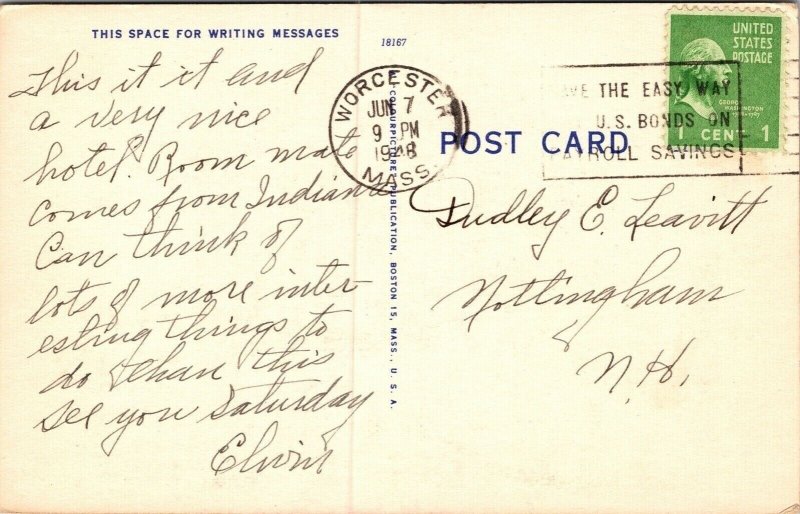 THIS SPACE FOR WRITING MESSAGES
18167
This it it and
a very nice
hotel. Room mate
comes from Indiana
Can think of
lots of more inter-
esting things to
do than this
see you Saturday
Elvin
WORCESTER
JUN 7
9 PM
1948
MASS.
COLOURPICTURE PUBLICATION, BOSTON 15, MASS., U. S. A.
POST CARD
AVE THE EASY WAY
U.S. BONDS ON
AYROLL SAVINGS
UNITED
STATES
POSTAGE
GEORGE
WASHINGTON
1 CENT 1
Dudley E. Leavitt
Nottingham
N.H.